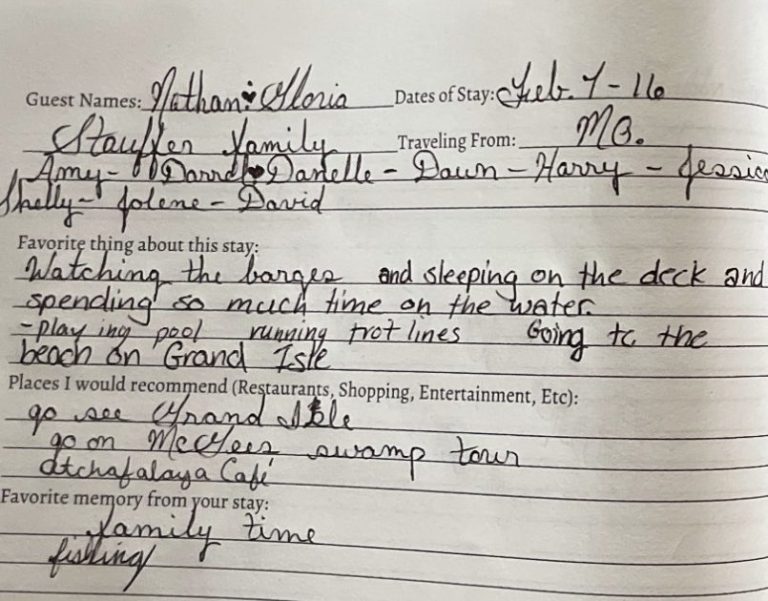 Guest Names: Nathan & Gloria Dates of Stay: Feb. 7-16
Stauffer family Traveling From: MO.
Amy - Darrel Danelle - Dawn - Harry - Jessica
Shelly - Jolene - David
Favorite thing about this stay:
Watching the barges and sleeping on the deck and
spending so much time on the water.
-playing pool running trotlines Going to the
beach on Grand Isle
Places I would recommend (Restaurants, Shopping, Entertainment, Etc):
go see Grand Isle
go on McGees swamp tour
atchafalaya Café
Favorite memory from your stay:
family time
fishing